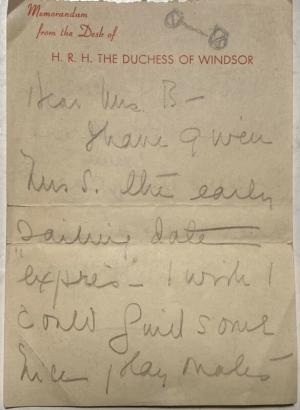 Memorandum
from the Desk of
H. R. H. THE DUCHESS OF WINDSOR
Dear Mrs. B –
I have given
Mrs S. the early
sailing date
"exprès" – I wish I
could find some
nice play mates